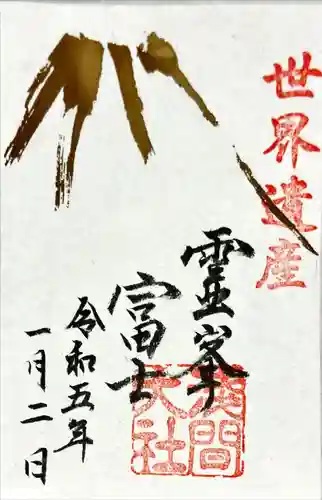 世界遺産
霊峯
富士
令和五年
一月二日
浅間
大社